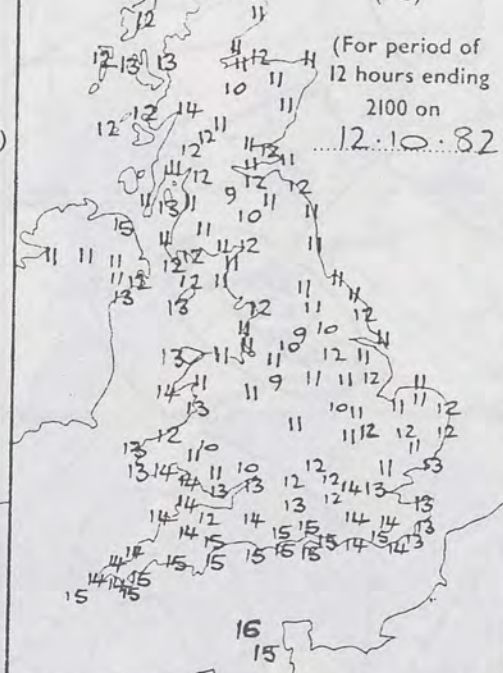 (For period of
12 hours ending
2100 on
12.10.82
12
11
12 13 13
11 12 11
10 11
11
12 14
12
11
12
12
11 13 11
11
12
12 12
9
11 13 11
11
10
11
15
11
11
11 12
11
11 11 11
12 12
11
11 12
12 11
13
13
11
11
11
12
12
11
9 10
11
11
10
13 11
11
12 11
14 11
11
9
11 11 12
11
13
11
10 11
11
12
11
12
13
12
11 10
11 12
12
11
12
13
14
11
10
12
11
13
14 13
13
12
12
14 13
13
14
14
12
14
13
12
14
14
13
14
15
15
15
15
15
15
14
15
14
13
14
14
15
15
14
14
15
15
15
16
15